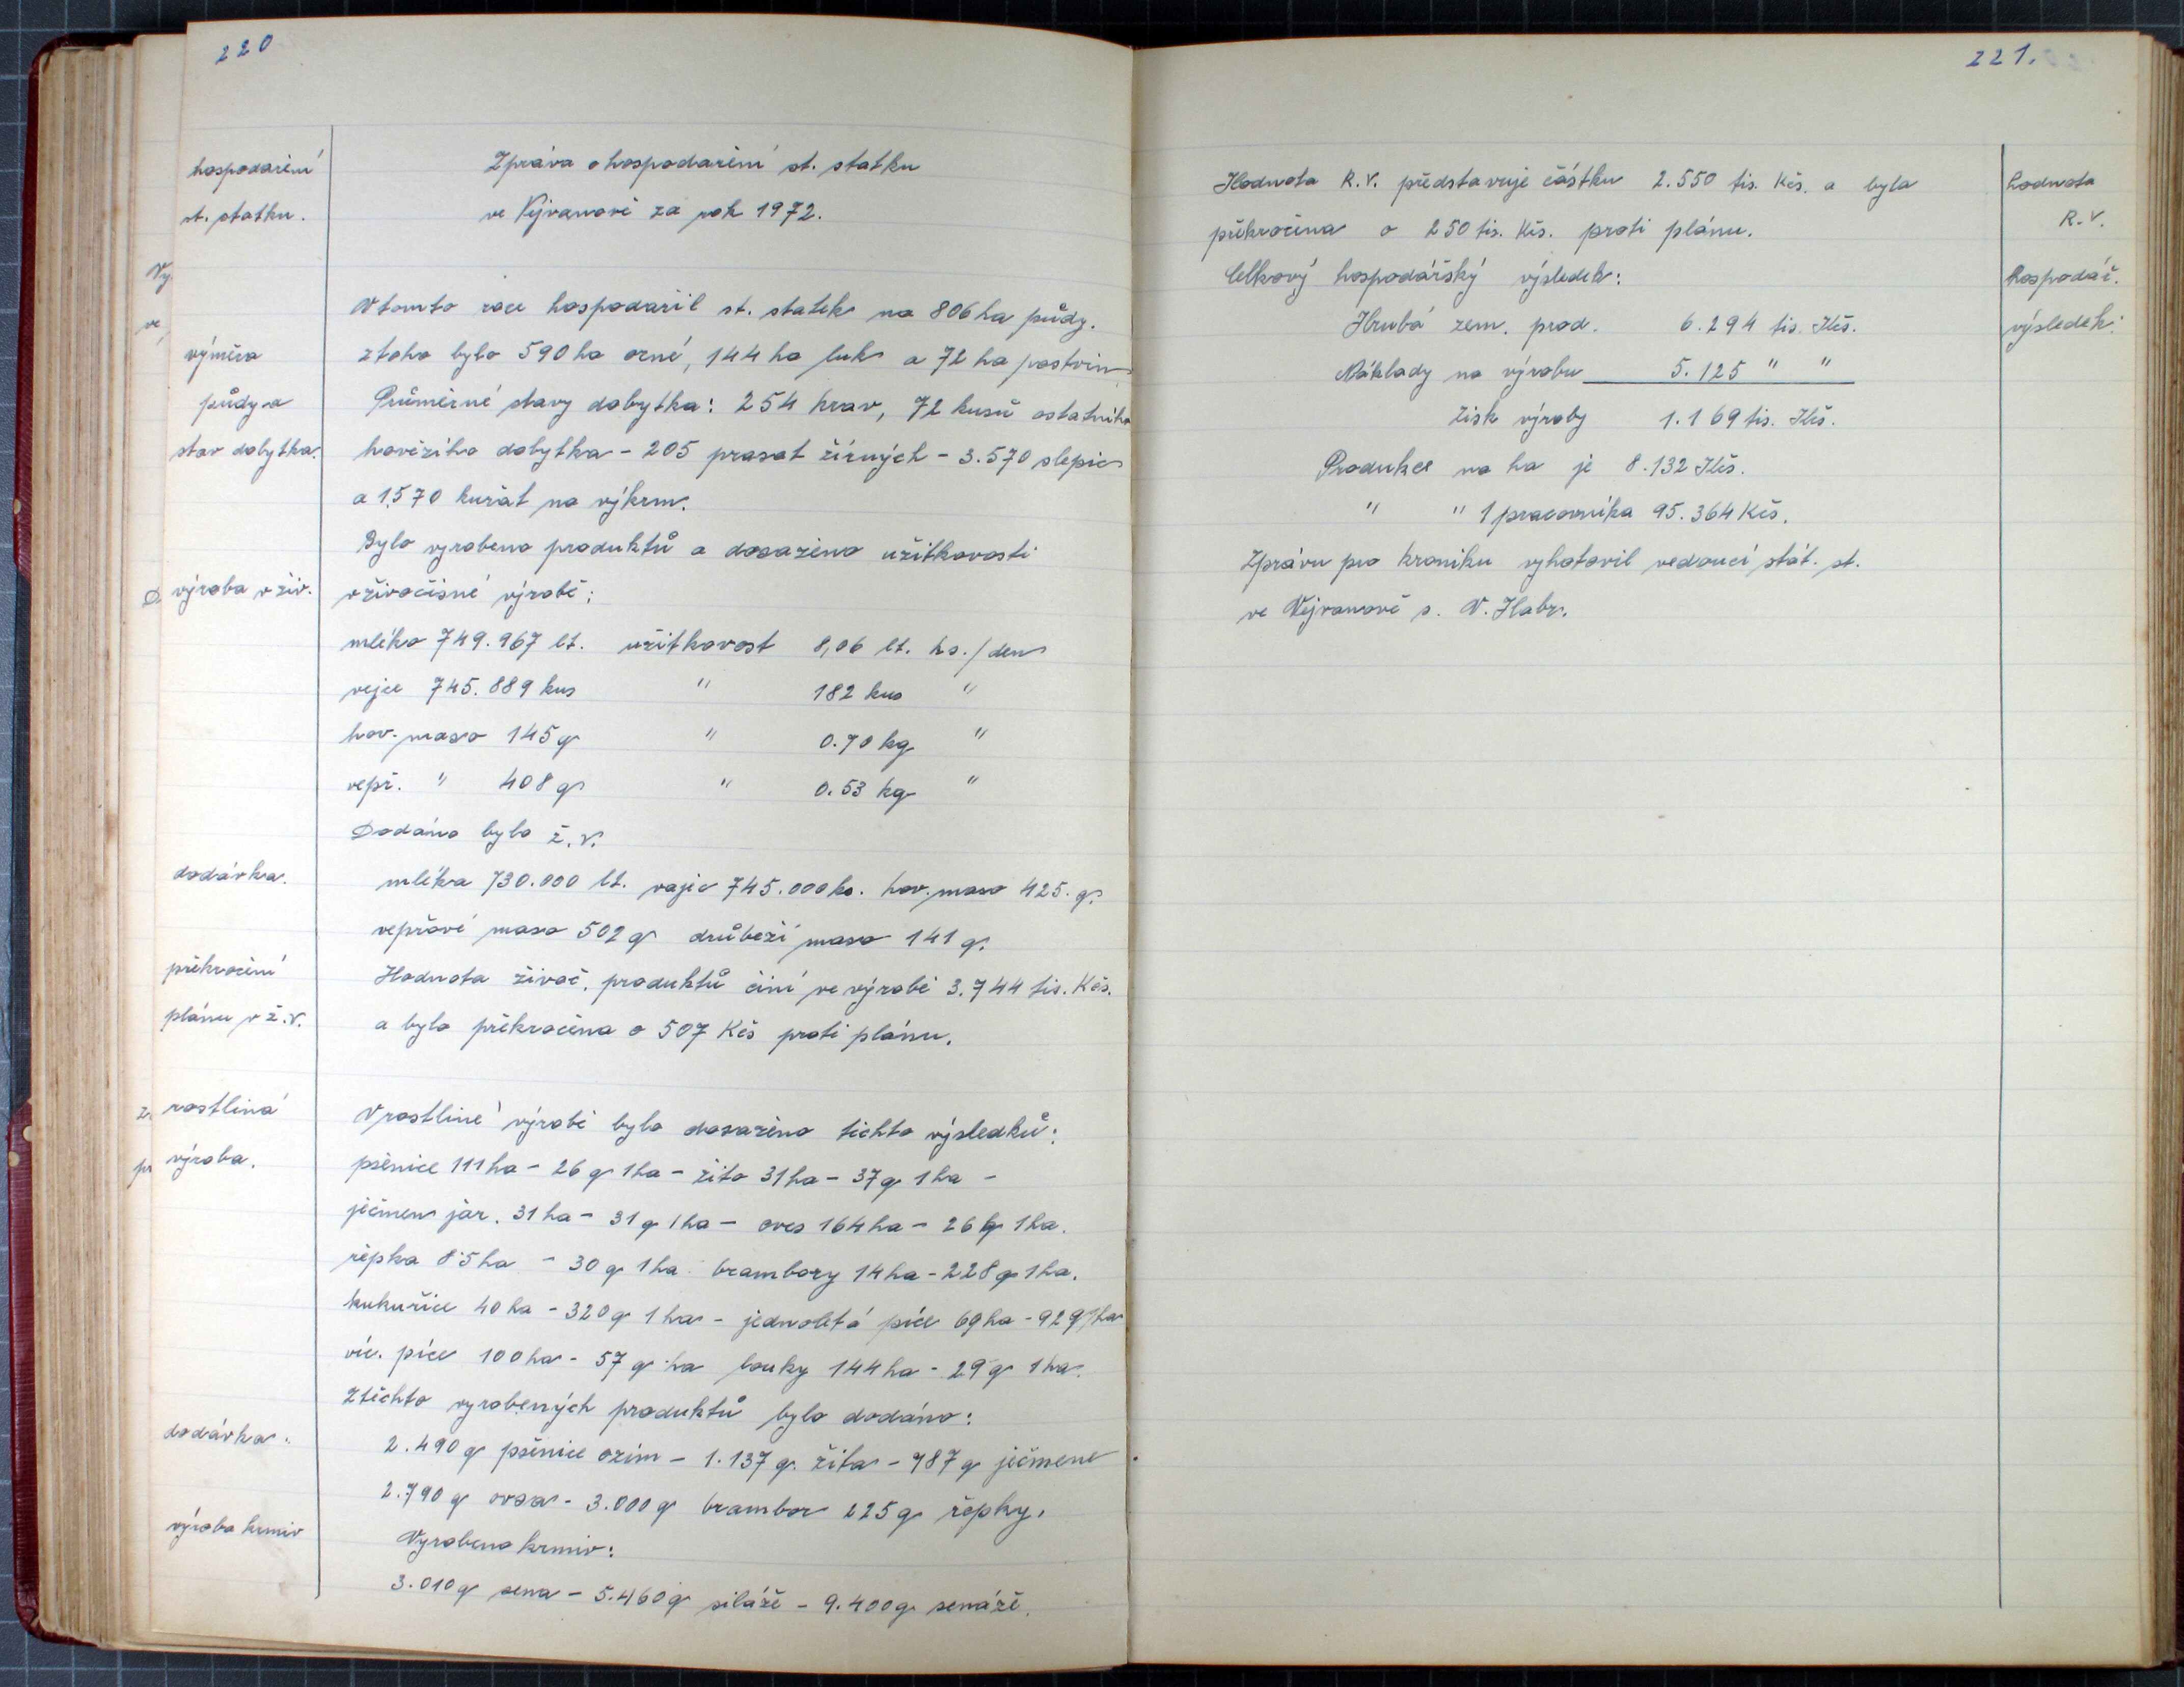 220
hospodaření
st. statku.
Zpráva o hospodaření st. statku
ve Vejvanově za rok 1972.
V tomto roce hospodařil st. statek na 806 ha půdy.
výměra
z toho bylo 590 ha orné, 144 ha luk a 72 ha pastvin
půdy a
Průměrné stavy dobytka: 254 krav, 72 kusů ostatního
stav dobytka.
hovězího dobytka - 205 prasat žírných - 3.570 slepic
a 1.570 kuřat na výkrm.
Bylo vyrobeno produktů a dosaženo užitkovosti
výroba v živ.
v živočisné výrobě:
mléko 749.967 lt. užitkovost 8,06 lt. ks./den
vejce 745.889 kus " 182 kus "
hov. maso 145 q " 0.70 kg "
vepř. " 408 q " 0.53 kg "
Dodáno bylo ž.v.
dodávka.
mléka 730.000 lt. vajec 745.000 ks. hov. maso 425. q.
vepřové maso 502 q drůbeží maso 141 q.
překročení
Hodnota živoč. produktů činí ve výrobě 3.744 tis. Kčs.
plánu v ž.v.
a byla překročena o 507 Kčs proti plánu.
rostliná
V rostliné výrobě bylo dosaženo těchto výsledků:
výroba.
pšenice 111 ha - 26 q 1 ha - žito 31 ha - 37 q 1 ha -
ječmen jar. 31 ha - 31 q 1 ha - oves 164 ha - 26 q 1 ha.
řepka 8'5 ha - 30 q 1 ha. brambory 14 ha - 228 q 1 ha.
kukuřice 40 ha - 320 q 1 ha - jednoletá píce 69 ha - 92 q 1 ha
víc. píce 100 ha - 57 q ha louky 144 ha - 29 q 1 ha.
Z těchto vyrobených produktů bylo dodáno:
dodávka.
2.490 q pšenice ozim - 1.137 q. žita - 787 q ječmene
2.790 q ovsa - 3.000 q brambor 225 q řepky.
výroba krmiv
Vyrobeno krmiv:
3.010 q sena - 5.460 q siláže - 9.400 q senáže.
221.
Hodnota R.V. představuje částku 2.550 tis. Kčs. a byla
hodnota
R.V.
překročena o 250 tis. Kčs. proti plánu.
Celkový hospodářský výsledek:
hospodář.
Hrubá zem. prod. 6.294 tis. Kčs.
výsledek:
Náklady na výrobu 5.125 " "
zisk výroby 1.169 tis. Kčs.
Produkce na ha je 8.132 Kčs.
" " 1 pracovníka 95.364 Kčs.
Zprávu pro kroniku vyhotovil vedoucí stát. st.
ve Vejvanově s. V. Habr.